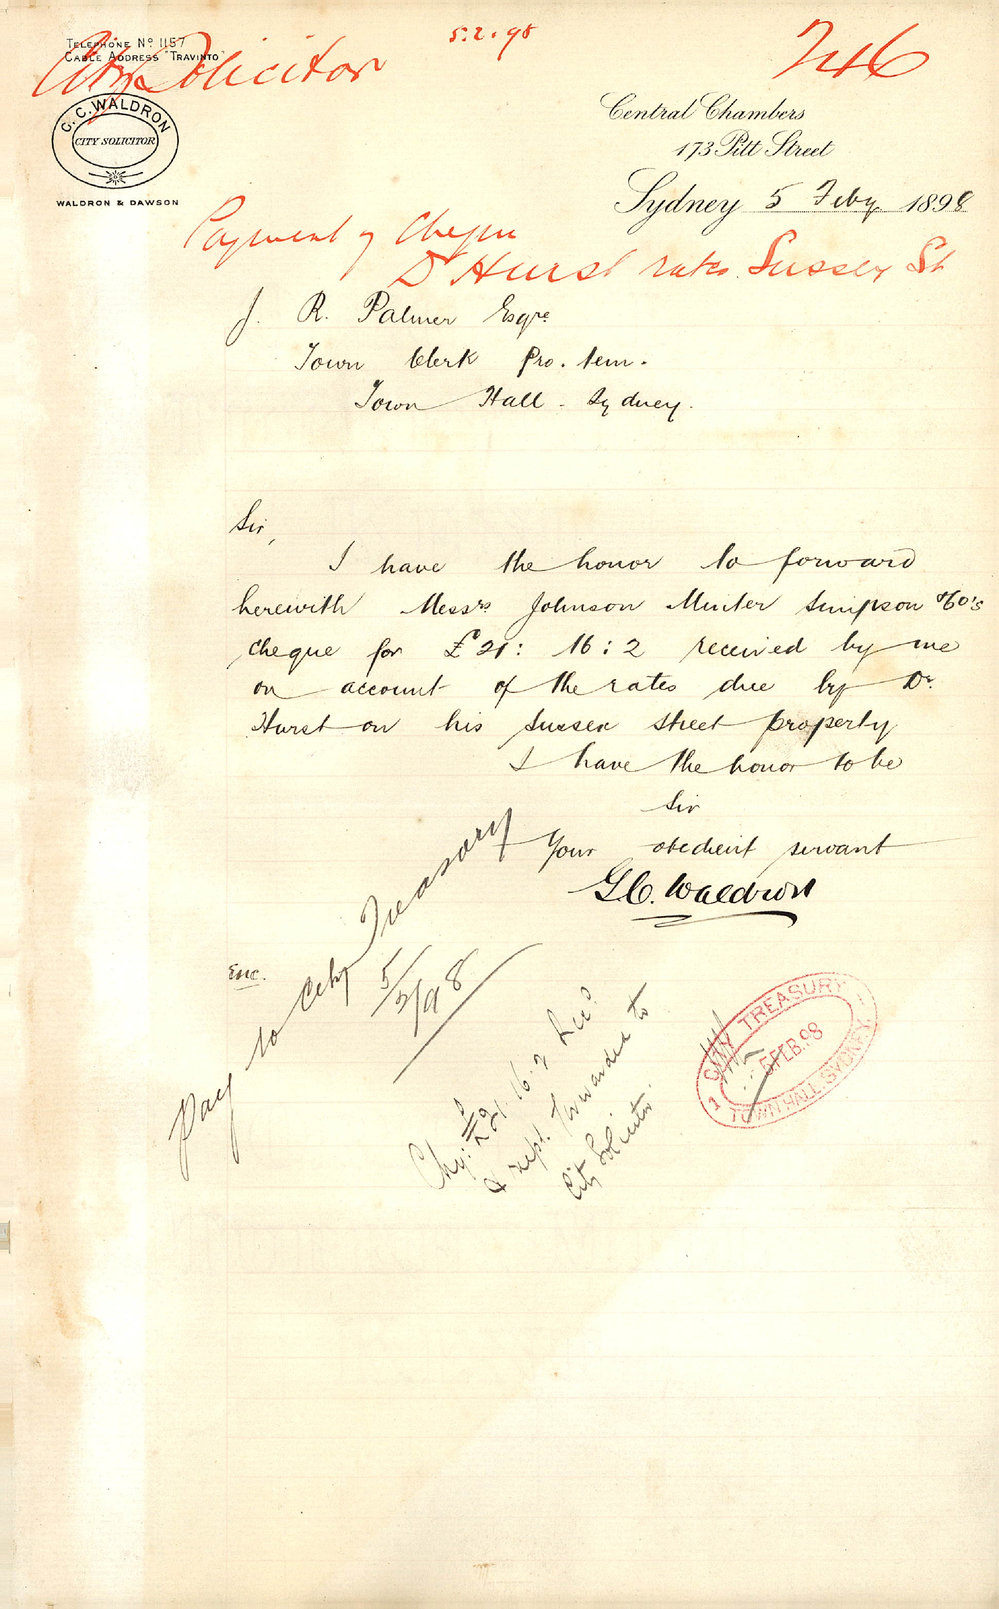 Telephone No 1157
Cable Address "Travinto"
City Solicitor
5.2.98
746
G. C. WALDRON
CITY SOLICITOR
WALDRON & DAWSON
Central Chambers
173 Pitt Street
Sydney 5 Feby 1898
Payment of Cheque
Dr Hurst rates Sussex St
J. R. Palmer Esqre
Town Clerk Pro. tem.
Town Hall. Sydney.
Sir,
I have the honor to forward
herewith Messrs Johnson Minter Simpson & Co's
cheque for £21: 16: 2 received by me
on account of the rates due by Dr.
Hurst on his Sussex Street property
I have the honor to be
Sir
Your obedient servant
G. C. Waldron
Enc.
Pay to City Treasury
5/2/98
Chq: £21. 16. 2 Recd
& rept. forwarded to
City Solicitor.
CITY TREASURY
5 FEB. 98
1 TOWN HALL, SYDNEY